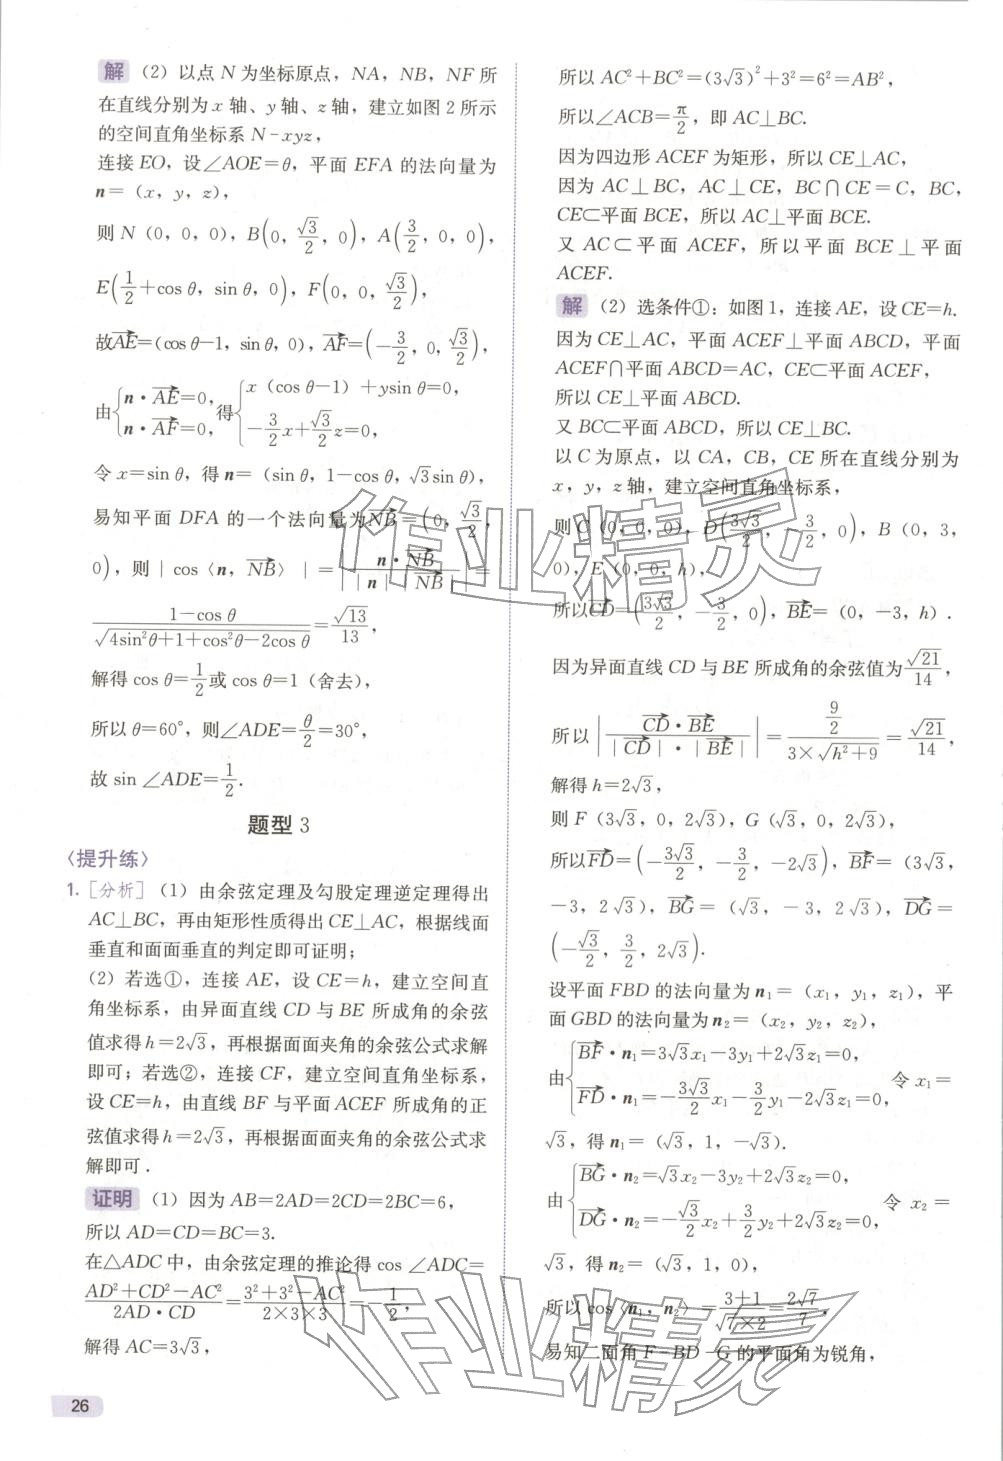 解 （2）以点 N 为坐标原点，NA，NB，NF 所
在直线分别为 x 轴、y 轴、z 轴，建立如图 2 所示
的空间直角坐标系 N-xyz，
连接 EO，设∠AOE=θ，平面 EFA 的法向量为
n=（x，y，z），
则 N（0，0，0），B(0，√3/2，0)，A(3/2，0，0)，
E(1/2+cos θ，sin θ，0)，F(0，0，√3/2)，
故AE=(cos θ-1，sin θ，0)，AF=(-3/2，0，√3/2)，
由{n·AE=0，n·AF=0，得{x（cos θ-1）+ysin θ=0，-3/2x+√3/2z=0，
令 x=sin θ，得 n=（sin θ，1-cos θ，√3sin θ），
易知平面 DFA 的一个法向量为NB=(0，√3/2，
0)，则｜cos〈n，NB〉｜=|n·NB/｜n｜｜NB｜|=
(1-cos θ)/√(4sin²θ+1+cos²θ-2cos θ)=√13/13，
解得 cos θ=1/2或 cos θ=1（舍去），
所以 θ=60°，则∠ADE=θ/2=30°，
故 sin ∠ADE=1/2.
题型 3
〈提升练〉
1.［分析］（1）由余弦定理及勾股定理逆定理得出
AC⊥BC，再由矩形性质得出 CE⊥AC，根据线面
垂直和面面垂直的判定即可证明；
（2）若选①，连接 AE，设 CE=h，建立空间直
角坐标系，由异面直线 CD 与 BE 所成角的余弦
值求得 h=2√3，再根据面面夹角的余弦公式求解
即可；若选②，连接 CF，建立空间直角坐标系，
设 CE=h，由直线 BF 与平面 ACEF 所成角的正
弦值求得 h=2√3，再根据面面夹角的余弦公式求
解即可．
证明 （1）因为 AB=2AD=2CD=2BC=6，
所以 AD=CD=BC=3.
在△ADC 中，由余弦定理的推论得 cos ∠ADC=
(AD²+CD²-AC²)/(2AD·CD)=(3²+3²-AC²)/(2×3×3)=-1/2，
解得 AC=3√3，
26
所以 AC²+BC²=(3√3)²+3²=6²=AB²，
所以∠ACB=π/2，即 AC⊥BC.
因为四边形 ACEF 为矩形，所以 CE⊥AC，
因为 AC⊥BC，AC⊥CE，BC∩CE=C，BC，
CE⊂平面 BCE，所以 AC⊥平面 BCE.
又 AC⊂平面 ACEF，所以平面 BCE⊥平面
ACEF.
解 （2）选条件①：如图 1，连接 AE，设 CE=h.
因为 CE⊥AC，平面 ACEF⊥平面 ABCD，平面
ACEF∩平面 ABCD=AC，CE⊂平面 ACEF，
所以 CE⊥平面 ABCD.
又 BC⊂平面 ABCD，所以 CE⊥BC.
以 C 为原点，以 CA，CB，CE 所在直线分别为
x，y，z 轴，建立空间直角坐标系，
则 C（0，0，0），D(3√3/2，-3/2，0)，B（0，3，
0），E（0，0，h），
所以CD=(3√3/2，-3/2，0)，BE=（0，-3，h）.
因为异面直线 CD 与 BE 所成角的余弦值为√21/14，
所以|CD·BE/｜CD｜·｜BE｜|=(9/2)/(3×√(h²+9))=√21/14，
解得 h=2√3，
则 F（3√3，0，2√3），G（√3，0，2√3），
所以FD=(-3√3/2，-3/2，-2√3)，BF=（3√3，
-3，2√3），BG=（√3，-3，2√3），DG=
(-√3/2，3/2，2√3).
设平面 FBD 的法向量为 n₁=（x₁，y₁，z₁），平
面 GBD 的法向量为 n₂=（x₂，y₂，z₂），
由{BF·n₁=3√3x₁-3y₁+2√3z₁=0，FD·n₁=-3√3/2x₁-3/2y₁-2√3z₁=0，令 x₁=
√3，得 n₁=（√3，1，-√3）.
由{BG·n₂=√3x₂-3y₂+2√3z₂=0，DG·n₂=-√3/2x₂+3/2y₂+2√3z₂=0，令 x₂=
√3，得 n₂=（√3，1，0），
所以 cos〈n₁，n₂〉=(3+1)/(√7×2)=2√7/7，
易知二面角 F-BD-G 的平面角为锐角，
作业精灵
作业精灵